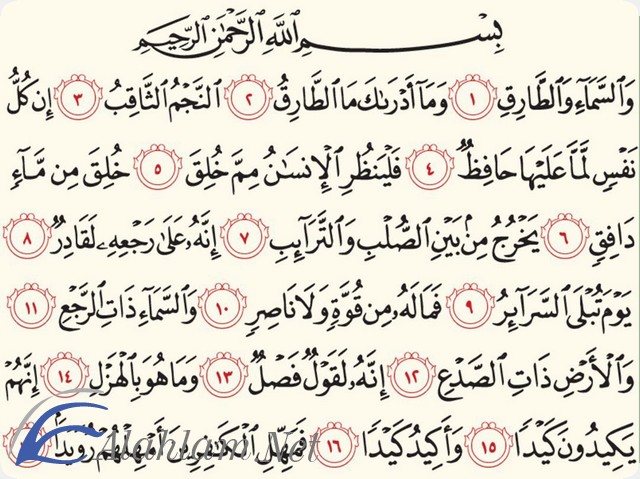 بِسْمِ ٱللَّهِ ٱلرَّحْمَٰنِ ٱلرَّحِيمِ
وَٱلسَّمَآءِ وَٱلطَّارِقِ ١ وَمَآ أَدْرَىٰكَ مَا ٱلطَّارِقُ ٢ ٱلنَّجْمُ ٱلثَّاقِبُ ٣ إِن كُلُّ
نَفْسٍ لَّمَّا عَلَيْهَا حَافِظٌ ٤ فَلْيَنظُرِ ٱلْإِنسَٰنُ مِمَّ خُلِقَ ٥ خُلِقَ مِن مَّآءٍ
دَافِقٍ ٦ يَخْرُجُ مِنۢ بَيْنِ ٱلصُّلْبِ وَٱلتَّرَآئِبِ ٧ إِنَّهُۥ عَلَىٰ رَجْعِهِۦ لَقَادِرٌ ٨
يَوْمَ تُبْلَى ٱلسَّرَآئِرُ ٩ فَمَا لَهُۥ مِن قُوَّةٍ وَلَا نَاصِرٍ ١٠ وَٱلسَّمَآءِ ذَاتِ ٱلرَّجْعِ ١١
وَٱلْأَرْضِ ذَاتِ ٱلصَّدْعِ ١٢ إِنَّهُۥ لَقَوْلٌ فَصْلٌ ١٣ وَمَا هُوَ بِٱلْهَزْلِ ١٤ إِنَّهُمْ
يَكِيدُونَ كَيْدًا ١٥ وَأَكِيدُ كَيْدًا ١٦ فَمَهِّلِ ٱلْكَٰفِرِينَ أَمْهِلْهُمْ رُوَيْدًۢا
Alahlam.Net